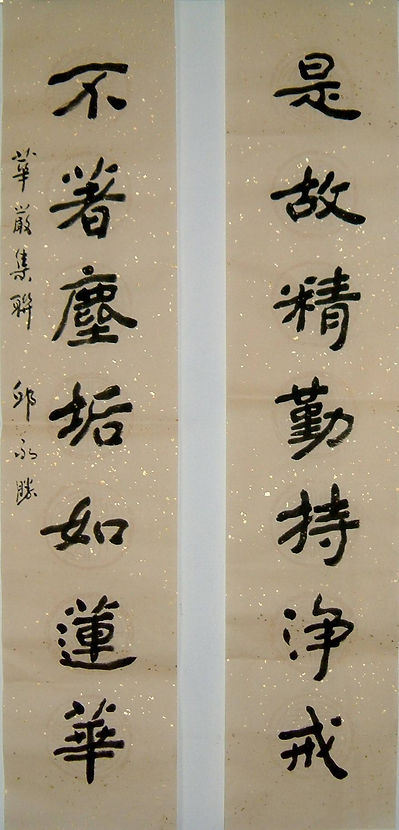 是故精勤持净戒
不著塵垢如蓮華
華嚴集聯 邱永勝